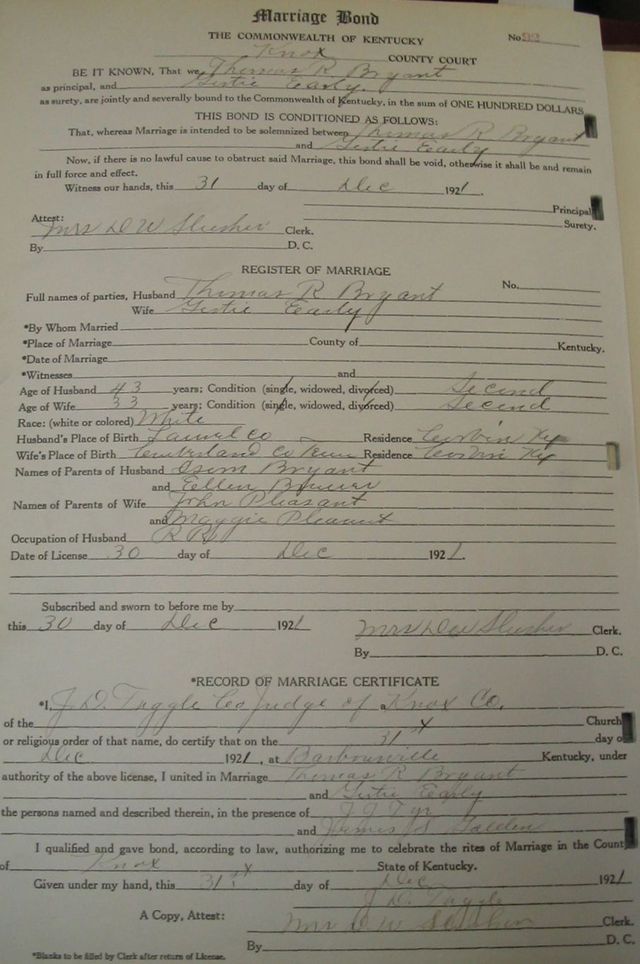 Marriage Bond
THE COMMONWEALTH OF KENTUCKY No 92
Knox COUNTY COURT
BE IT KNOWN, That we, Thomas R Bryant
as principal, and Gertie Early
as surety, are jointly and severally bound to the Commonwealth of Kentucky, in the sum of ONE HUNDRED DOLLARS
THIS BOND IS CONDITIONED AS FOLLOWS:
That, whereas Marriage is intended to be solemnized between Thomas R Bryant
and Gertie Early
Now, if there is no lawful cause to obstruct said Marriage, this bond shall be void, otherwise it shall be and remain
in full force and effect.
Witness our hands, this 31 day of Dec 1921.
Principal
Surety.
Attest:
Mrs D W Slusher Clerk.
By D. C.
REGISTER OF MARRIAGE
No.
Full names of parties, Husband Thomas R Bryant
Wife Gertie Early
*By Whom Married
*Place of Marriage County of Kentucky.
*Date of Marriage
*Witnesses and
Age of Husband 43 years; Condition (single, widowed, divorced) Second
Age of Wife 33 years; Condition (single, widowed, divorced) Second
Race: (white or colored) White
Husband's Place of Birth Laurel Co Residence Corbin Ky
Wife's Place of Birth Cumberland Co Tenn Residence Corbin Ky
Names of Parents of Husband Isom Bryant
and Ellen
Names of Parents of Wife John Pleasant
and Maggie Pleasant
Occupation of Husband R R
Date of License 30 day of Dec 1921.
Subscribed and sworn to before me by
this 30 day of Dec 1921 Mrs D W Slusher Clerk.
By D. C.
*RECORD OF MARRIAGE CERTIFICATE
*I, J. D. Tuggle Co Judge of Knox Co.
of the Church
or religious order of that name, do certify that on the 31st day o
Dec 1921, at Barbourville Kentucky, under
authority of the above license, I united in Marriage Thomas R Bryant
and Gertie Early
the persons named and described therein, in the presence of J J Tye
and James S Golden
I qualified and gave bond, according to law, authorizing me to celebrate the rites of Marriage in the Count
of Knox State of Kentucky.
Given under my hand, this 31st day of Dec 1921
J D Tuggle
A Copy, Attest: Mrs D W Slusher Clerk.
By D. C.
*Blanks to be filled by Clerk after return of License.